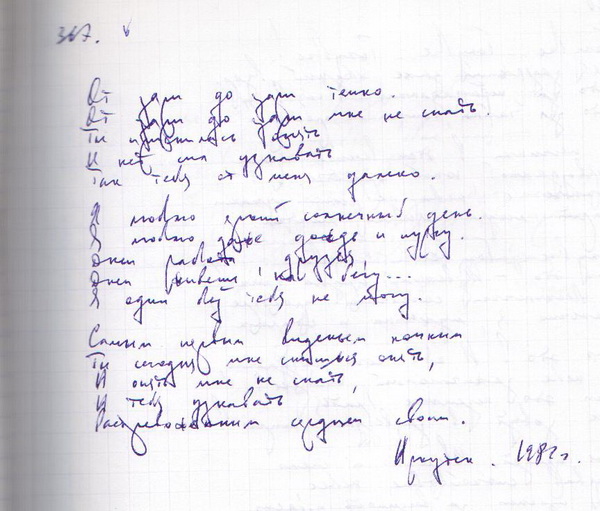 367.
От зари до зари темно.
От зари до зари мне не спать.
Ты приснилась опять
И нет сил узнавать
Так тебя от меня далеко.
Я люблю яркий солнечный день.
Я люблю даже дождь и пургу.
Днем работа, друзья,
Днем живешь, как в бегу...
Я один без тебя не могу.
Самым первым виденьем ночным
Ты сегодня мне снишься опять,
И опять мне не спать,
И тебя узнавать
Растревоженным сердцем своим.
Иркутск. 1982г.